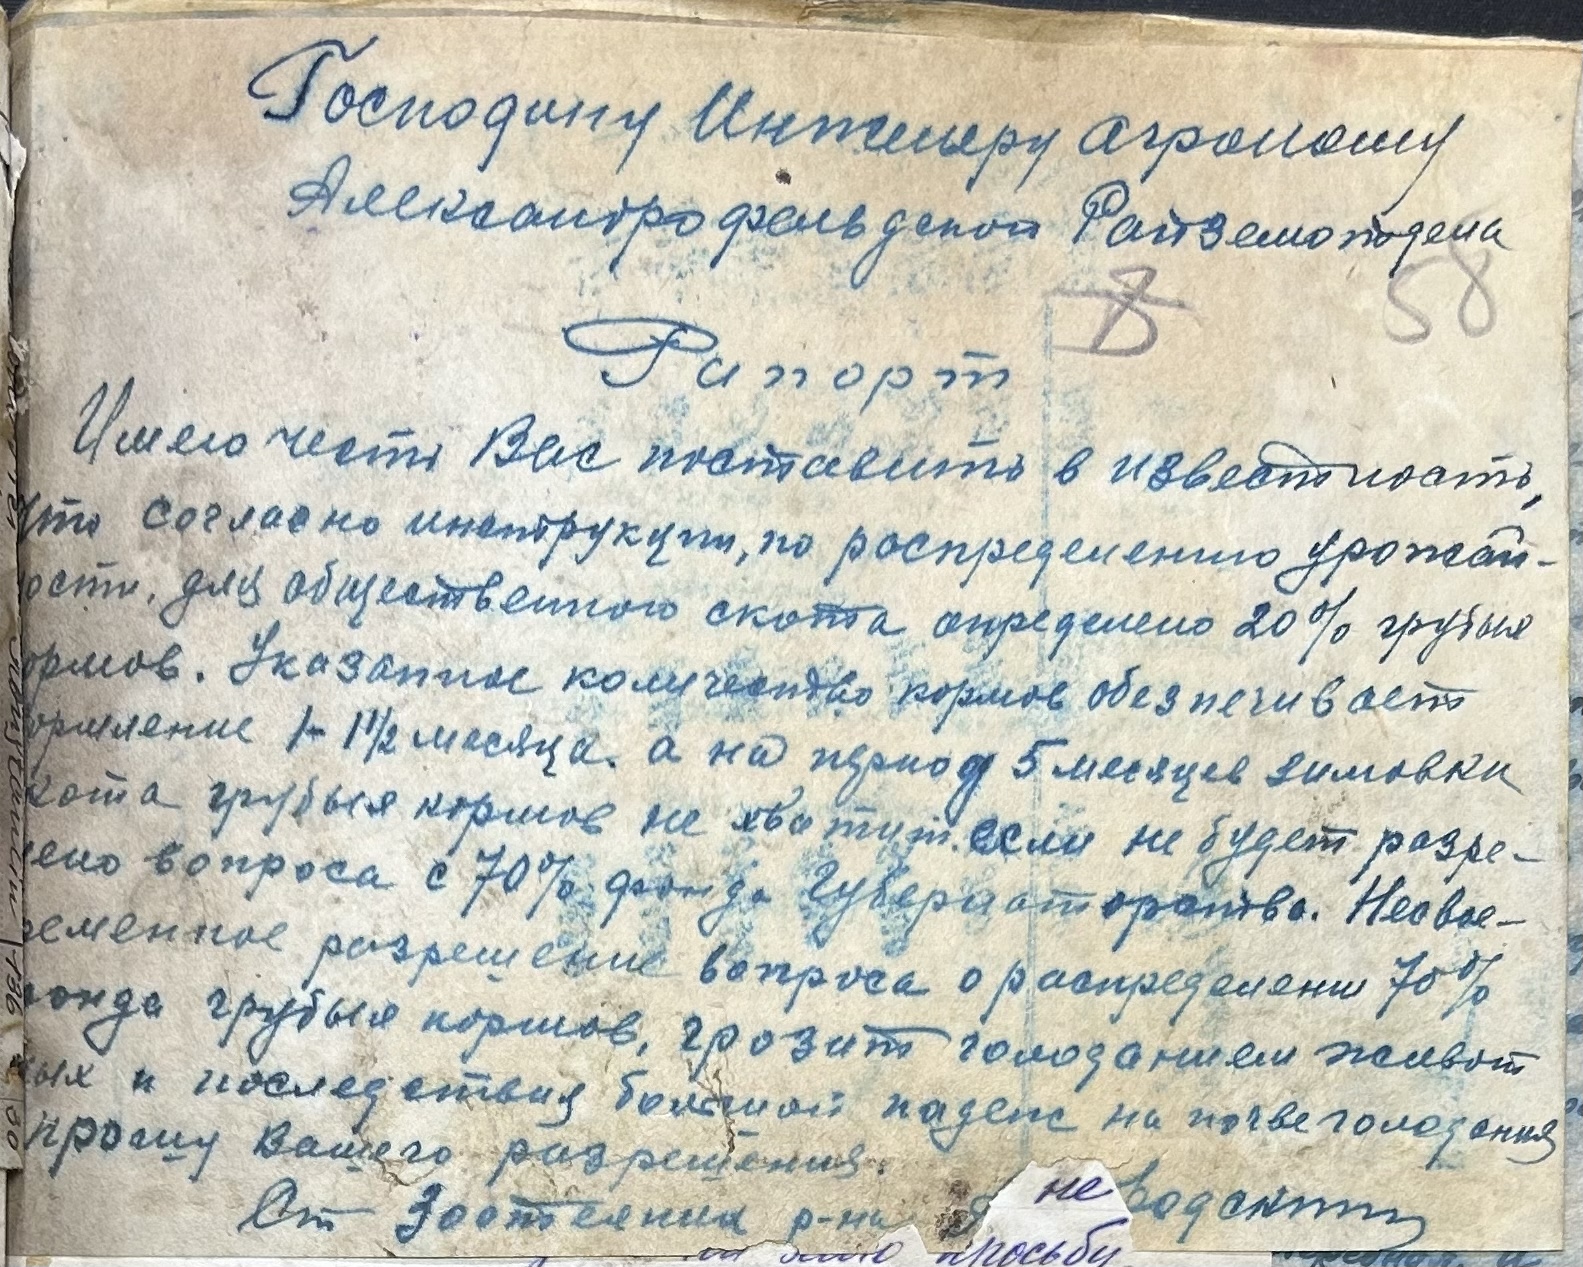 Господину Инженеру агроному
Александрофельдской Райземотдела
8
58
Рапорт
Имею честь Вас поставить в известность,
что согласно инструкции, по распределению урожай-
ости, для общественного скота определено 20% грубых
ормов. Указанное количество кормов обезпечивает
ормление 1-1 1/2 месяца. а на период 5 месяцев зимовки
кота грубых кормов не хватит. если не будет разре-
ено вопроса с 70% фонда Губернаторства. Несвое-
ременное разрешение вопроса о распределении 70%
онда грубых кормов, грозит голоданием живот
ных и последствия большой падеж на почве голодания
прошу Вашего разрешения.
От Зоотехника р-на
не
просьбу